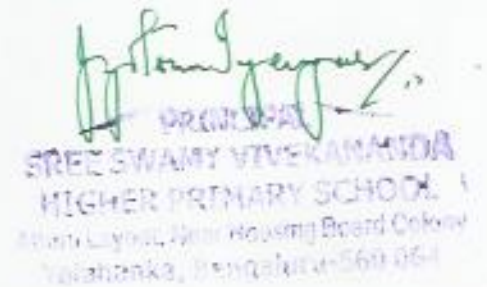 PRINCIPAL
SREE SWAMY VIVEKANANDA
HIGHER PRIMARY SCHOOL
Layout, Near Housing Board Colony
Yelahanka, Bengaluru-560 064